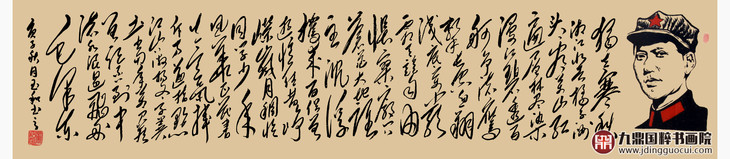 独立寒秋
湘江北去橘子洲
头看万山红
遍层林尽染
漫江碧透百
舸争流鹰
击长空鱼翔
浅底万类
霜天竞自由
怅寥廓问
苍茫大地谁
主沉浮
携来百侣曾
游忆往昔峥
嵘岁月稠恰
同学少年
风华正茂书
生意气挥
斥方遒指点
江山激扬文字粪
土当年万户侯
曾记否到中
流击水浪遏飞舟
毛泽东
庚子秋月玉和书之
九鼎国粹书画院
www.jdingguocui.com